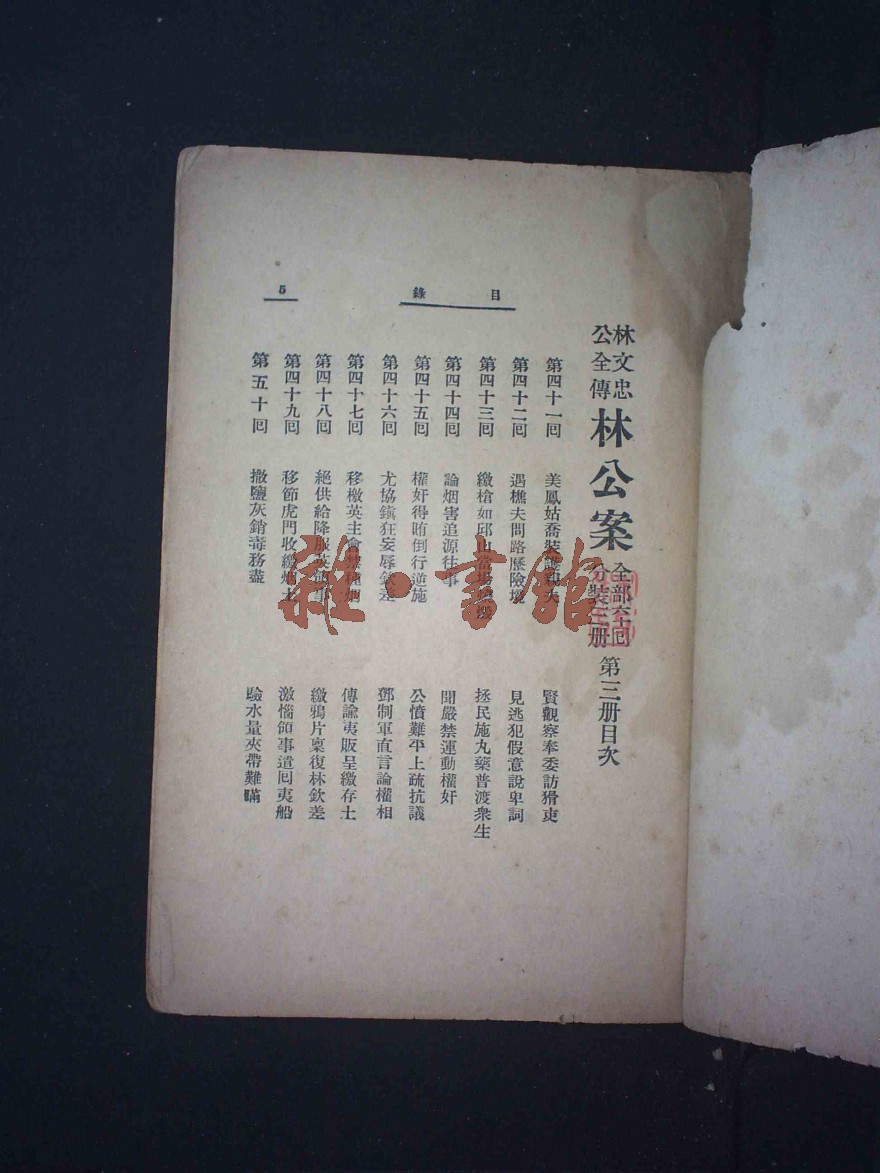 目錄
5
林文忠
公全傳
林公案
全部六十回
分裝三册
第三册目次
第四十一回 美鳳姑喬裝護 夫 賢觀察奉委訪猾吏
第四十二回 遇樵夫問路歷險境 見逃犯假意說卑詞
第四十三回 繳槍如邱山當場 拯民施丸藥普渡衆生
第四十四回 論烟害追源往事 聞嚴禁運動權奸
第四十五回 權奸得賄倒行逆施 公憤難平上疏抗議
第四十六回 尤協鎮狂妄辱欽差 鄧制軍直言論權相
第四十七回 移檄英主會禁種烟 傳諭夷販呈繳存土
第四十八回 絕供給降服英領事 繳鴉片稟復林欽差
第四十九回 移節虎門收繳烟土 激惱領事遣回夷船
第五十回 撒鹽灰銷毒務盡 驗水量夾帶難瞞
雜·書館